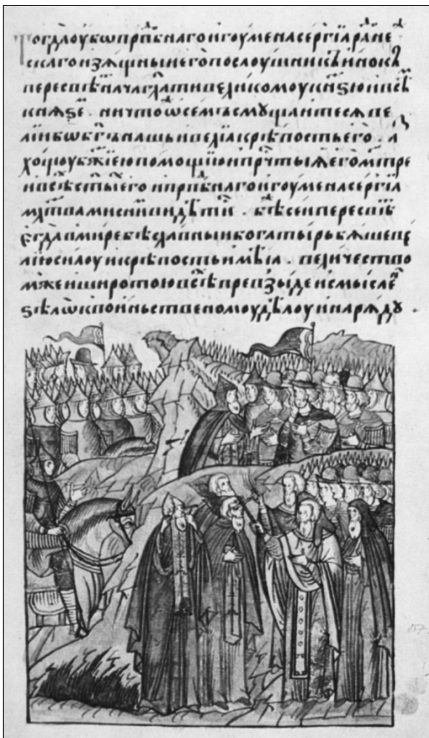 Тогда оубѡ прпⷣбнаго игоумена сергїа радонеⷤ
скаго изѧщныи его послоушникъ инокъ
пересвѣⷮ нача гл҃ати великомоу кнѧѕю и всѣⷨ
кнѧѕеⷨ . ничтоⷤ ѡ семъ смꙋщаитесѧ ве
лїи бо бг҃ъ нашь и велїа крѣпость его . аⷥ
хощоу бж҃їею помощїю и прчⷭтыѧ его мт҃ре
и всѣⷯ ст҃ыⷯ его и прпⷣбнаго игоумена сергїа
млт҃вами с ниⷨ видѣтиⷭ . бѣ сеи пересвѣⷮ
егда в мире бѣ славныи богатырь бѧше ве
лїю силоу и крѣпость имѣа . величество
м же и широтою всѣⷯ превзыде и смыслеⷩ
ѕѣлѡ к воиньственомоу дѣлоу и нарѧдꙋ .